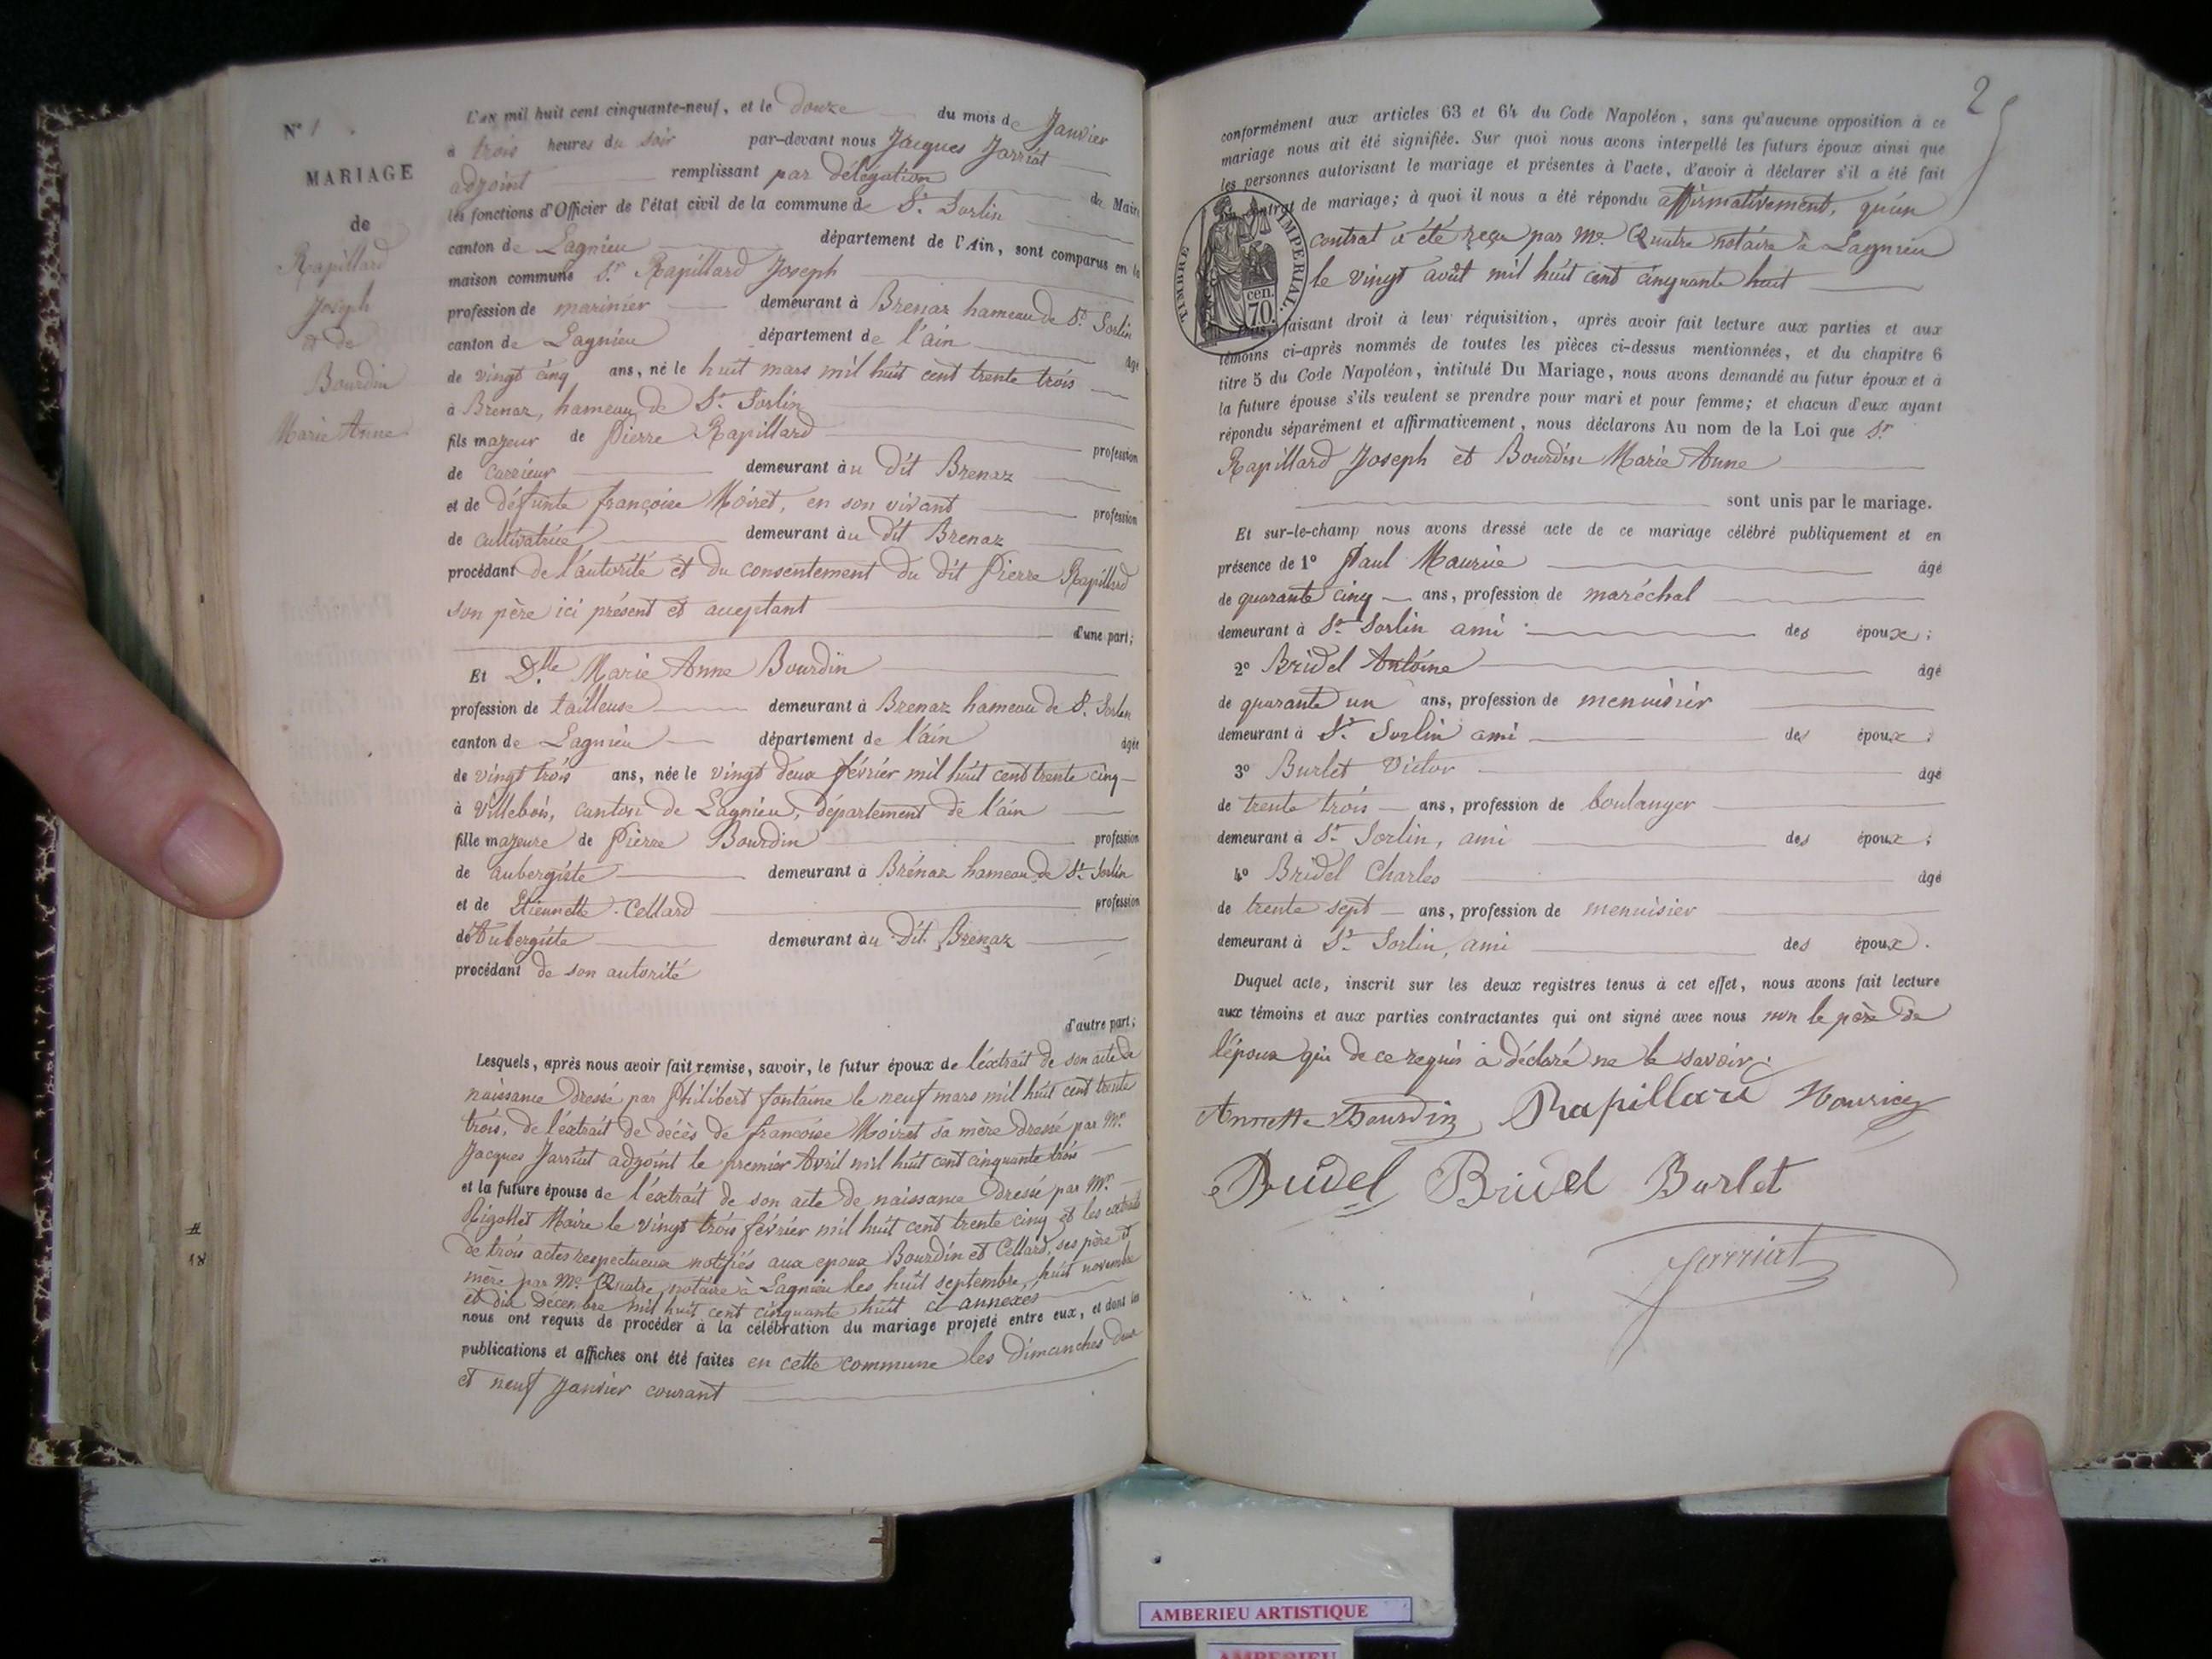 N° 1
MARIAGE
de
Rapillard
Joseph
et de
Bourdin
Marie Anne
L'an mil huit cent cinquante-neuf, et le douze du mois de Janvier
à trois heures du soir par-devant nous Jacques Jarriat
adjoint remplissant par délégation de Maire
les fonctions d'Officier de l'état civil de la commune de St. Sorlin
canton de Lagnieu département de l'Ain, sont comparus en la
maison commune Sr. Rapillard Joseph
profession de marinier demeurant à Brenaz hameau de St. Sorlin
canton de Lagnieu département de l'ain âgé
de vingt cinq ans, né le huit mars mil huit cent trente trois
à Brenaz, hameau de St. Sorlin
fils majeur de Pierre Rapillard profession
de carrieur demeurant àu dit Brenaz
et de défunte françoise Moiret, en son vivant profession
de cultivatrice demeurant àu dit Brenaz
procédant de l'autorité et du consentement du dit Pierre Rapillard
son père ici présent et acceptant
d'une part;
Et Dlle Marie Anne Bourdin
profession de tailleuse demeurant à Brenaz hameau de St. Sorlin
canton de Lagnieu département de l'ain âgée
de vingt trois ans, née le vingt deux février mil huit cent trente cinq
à Villebois, canton de Lagnieu, département de l'ain
fille majeure de Pierre Bourdin profession
de aubergiste demeurant à Brénaz hameau de St. Sorlin
et de Etiennette Cellard profession
de Aubergiste demeurant àu dit Brenaz
procédant de son autorité
d'autre part;
Lesquels, après nous avoir fait remise, savoir, le futur époux de l'extrait de son acte de
naissance dressé par Philibert fontaine le neuf mars mil huit cent trente
trois, de l'extrait de décès de françoise Moiret sa mère dressé par Mr.
Jacques Jarriat adjoint le premier Avril mil huit cent cinquante trois
et la future épouse de l'extrait de son acte de naissance dressé par Mr.
Rigollet Maire le vingt trois février mil huit cent trente cinq et les extraits
de trois actes respectueux notifiés aux epoux Bourdin et Cellard, ses père et
mère par Me. Quatre, notaire à Lagnieu les huit septembre, huit novembre
et dix décembre mil huit cent cinquante huit ci annexés
nous ont requis de procéder à la célébration du mariage projeté entre eux, et dont les
publications et affiches ont été faites en cette commune les dimanches deux
et neuf Janvier courant
18
2
conformément aux articles 63 et 64 du Code Napoléon, sans qu'aucune opposition à ce
mariage nous ait été signifiée. Sur quoi nous avons interpellé les futurs époux ainsi que
les personnes autorisant le mariage et présentes à l'acte, d'avoir à déclarer s'il a été fait
contrat de mariage; à quoi il nous a été répondu affirmativement, qu'un
contrat a été reçu par Me. Quatre notaire à Lagnieu
le vingt août mil huit cent cinquante huit
TIMBRE IMPERIAL.
cen.
70.
faisant droit à leur réquisition, après avoir fait lecture aux parties et aux
témoins ci-après nommés de toutes les pièces ci-dessus mentionnées, et du chapitre 6
titre 5 du Code Napoléon, intitulé Du Mariage, nous avons demandé au futur époux et à
la future épouse s'ils veulent se prendre pour mari et pour femme; et chacun d'eux ayant
répondu séparément et affirmativement, nous déclarons Au nom de la Loi que Sr.
Rapillard Joseph et Bourdin Marie Anne
sont unis par le mariage.
Et sur-le-champ nous avons dressé acte de ce mariage célébré publiquement et en
présence de 1° Paul Maurice âgé
de quarante cinq ans, profession de maréchal
demeurant à St. Sorlin ami des époux;
2° Bridel Antoine âgé
de quarante un ans, profession de menuisier
demeurant à St. Sorlin ami des époux;
3° Burlet Victor âgé
de trente trois ans, profession de boulanger
demeurant à St. Sorlin, ami des époux;
4° Bridel Charles âgé
de trente sept ans, profession de menuisier
demeurant à St. Sorlin, ami des époux.
Duquel acte, inscrit sur les deux registres tenus à cet effet, nous avons fait lecture
aux témoins et aux parties contractantes qui ont signé avec nous non le père de
l'époux qui de ce requis a déclaré ne le savoir.
Annette Bourdin Rapillard Mauricex
Bridel Bridel Burlet
Jarriat
AMBERIEU ARTISTIQUE
AMBERIEU